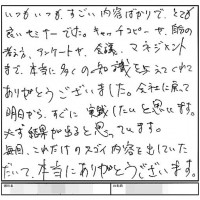 いつもいつも、すごい内容ばかりで、とても
良いセミナーでした。キャッチコピーや、
考え方、アンケートや、会議、マネジメント
まで、本当に多くの知識を与えてくれて
ありがとうございました。会社に戻って
明日から、すぐに実践したいと思います。
必ず結果が出ると思っています。
毎回、これだけのスゴイ内容を出していた
だいて、本当にありがとうございます。